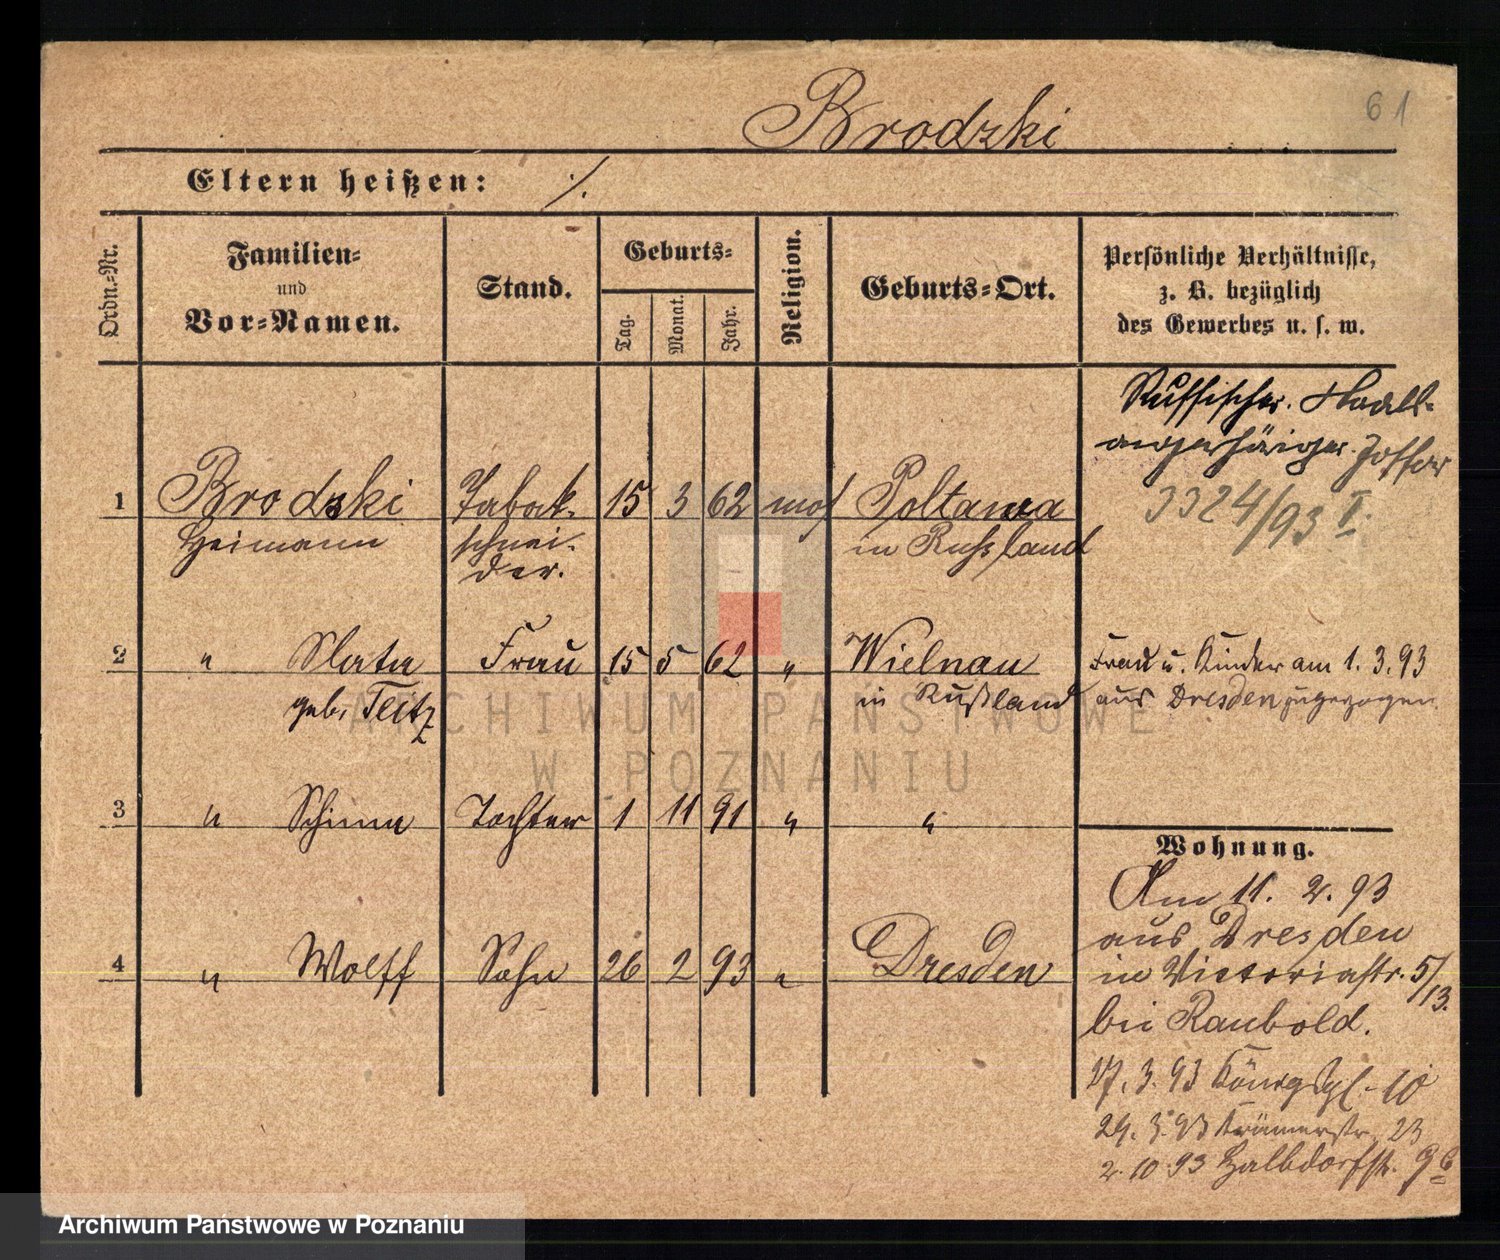 61
Brodzki
Eltern heißen: ·/.
Ordn.-Nr.
Familien-
und
Vor-Namen.
Stand.
Geburts-
Tag.
Monat.
Jahr.
Religion.
Geburts-Ort.
Persönliche Verhältnisse,
z. B. bezüglich
des Gewerbes u. s. w.
Russischer Staats-
angehöriger
3324/93 I.
1 Brodzki Tabak- 15 3 62 mos Poltawa
Heimann schnei- in Russland
der.
2 " Slata Frau 15 5 62 " Wielnau
geb. Teitz in Rußland
Frau u. Kinder am 1.3.93
aus Dresden zugezogen.
3 " Schima Tochter 1 11 91 " "
4 " Wolff Sohn 26 2 93 " Dresden
Wohnung.
Am 11. 2. 93
aus Dresden
in Victoriastr. 5/13.
bei Raubold.
17. 3. 93 Königspl. 10
29. 3. 93 Krämerstr. 23
2. 10. 93 Halbdorfstr. 9
ARCHIWUM PAŃSTWOWE
W POZNANIU
Archiwum Państwowe w Poznaniu